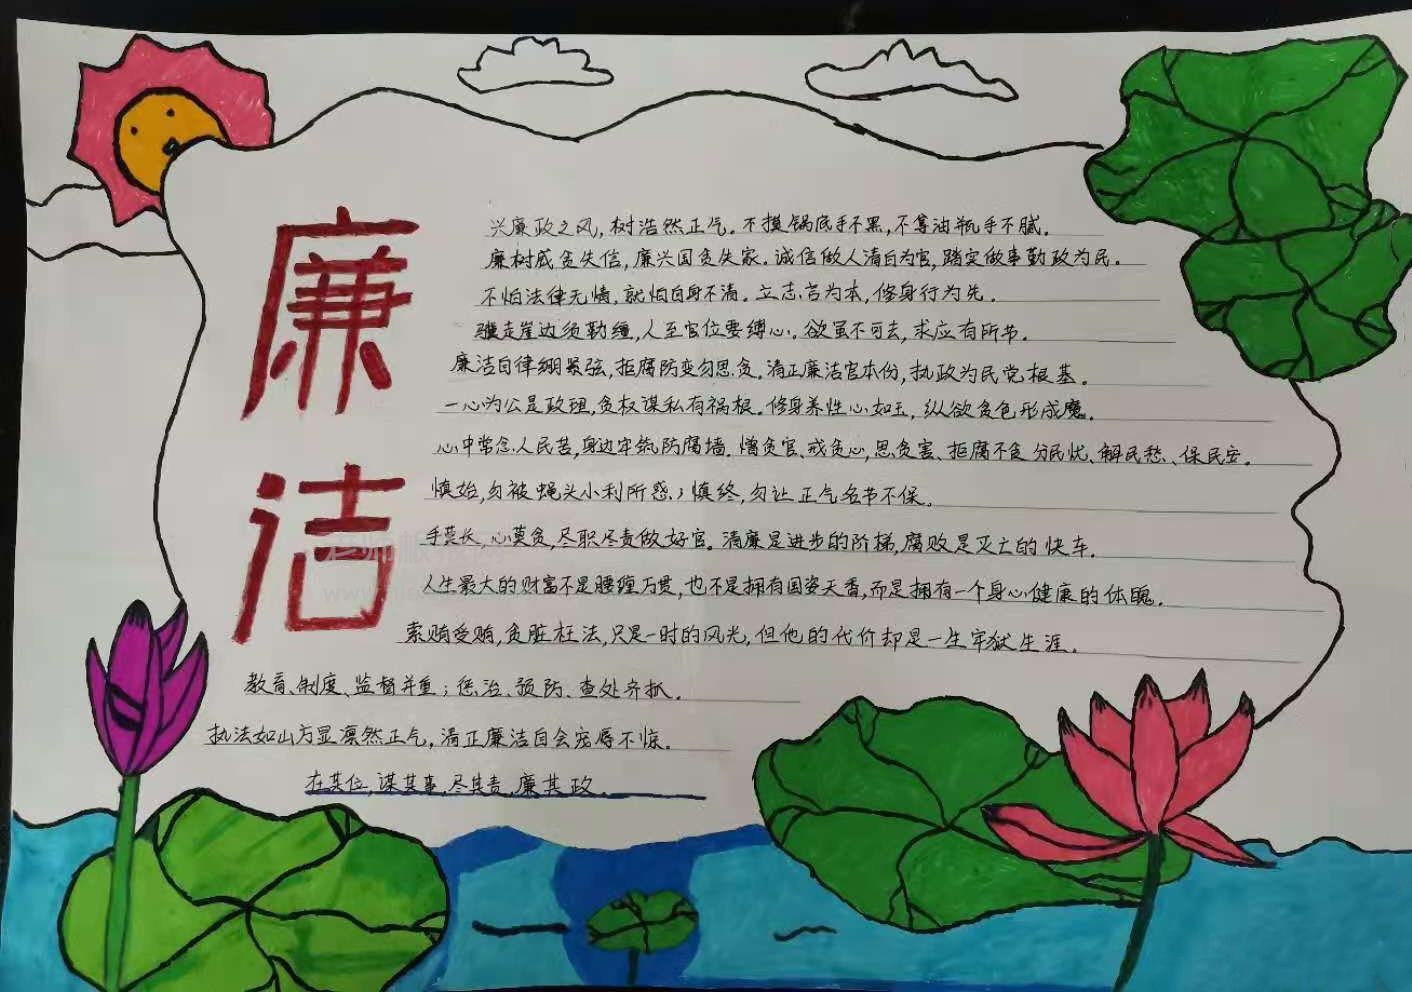 廉
洁
兴廉政之风,树浩然正气。不摸锅底手不黑,不拿油瓶手不腻。
廉树威贪失信,廉兴国贪失家。诚信做人清白为官,踏实做事勤政为民。
不怕法律无情,就怕自身不清。立志言为本,修身行为先。
骥走崖边须勒缰,人至官位要缚心。欲虽不可去,求应有所节。
廉洁自律绷紧弦,拒腐防变勿思贪。清正廉洁官本份,执政为民党根基。
一心为公是政理,贪权谋私有祸根。修身养性心如玉,纵欲贪色形成魔。
心中常念人民苦,身边牢筑防腐墙。憎贪官、戒贪心,思贪害、拒腐不贪分民忧、解民愁、保民安。
慎始,勿被蝇头小利所惑;慎终,勿让正气名节不保。
手莫长,心莫贪,尽职尽责做好官。清廉是进步的阶梯,腐败是灭亡的快车。
人生最大的财富不是腰缠万贯,也不是拥有国姿天香,而是拥有一个身心健康的体魄。
索贿受贿,贪脏枉法,只是一时的风光,但他的代价却是一生牢狱生涯。
教育、制度、监督并重;惩治、预防、查处齐抓。
执法如山方显凛然正气,清正廉洁自会宠辱不惊。
在其位,谋其事,尽其责,廉其政。